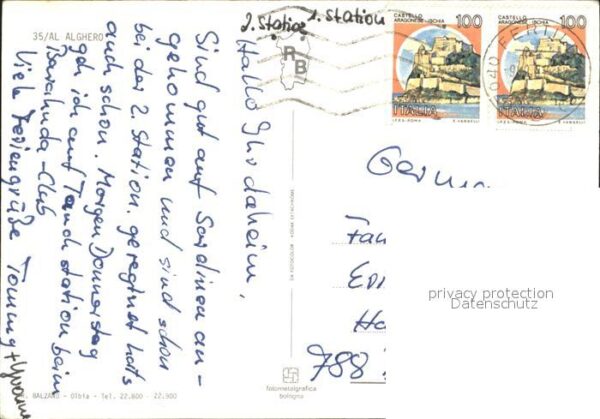 35/AL ALGHERO
2. Station
1. Station
RB
CASTELLO
ARAGONESE - ISCHIA
100
ITALIA
I.P.Z.S.-ROMA
E. VANGELLI
CASTELLO
ARAGONESE - ISCHIA
100
ITALIA
I.P.Z.S.-ROMA
E. VANGELLI
Hallo Ihr daheim,
Sind gut auf Sardinien an-
gekommen und sind schon
bei der 2. Station. geregnet hats
auch schon. Morgen Donnerstag
geh ich auf Tauchstation beim
Barakuda-Club
Viele Feriengrüße Tommy + Yvonne
Germ
Fam
788
privacy protection
Datenschutz
DA FOTOCOLOR - KODAK EKTACHROME
fotometalgrafica
bologna
BALZANO - Olbia - Tel. 22.800 - 22.900